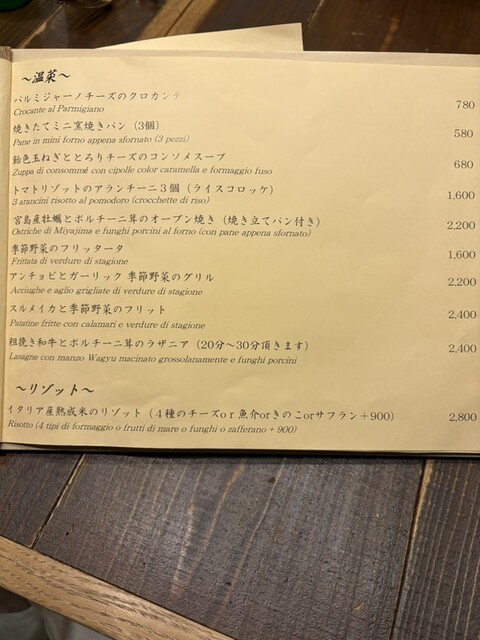 ～温菜～
パルミジャーノチーズのクロカンテ
Crocante al Parmigiano
780
焼きたてミニ窯焼きパン（3個）
Pane in mini forno appena sfornato (3 pezzi)
580
飴色玉ねぎととろりチーズのコンソメスープ
Zuppa di consommé con cipolle color caramella e formaggio fuso
680
トマトリゾットのアランチーニ３個（ライスコロッケ）
3 arancini risotto al pomodoro (crocchette di riso)
1,600
宮島産牡蠣とポルチーニ茸のオーブン焼き（焼き立てパン付き）
Ostriche di Miyajima e funghi porcini al forno (con pane appena sfornato)
2,200
季節野菜のフリッタータ
Frittata di verdure di stagione
1,600
アンチョビとガーリック 季節野菜のグリル
Acciughe e aglio grigliate di verdure di stagione
2,200
スルメイカと季節野菜のフリット
Patatine fritte con calamari e verdure di stagione
2,400
粗挽き和牛とポルチーニ茸のラザニア（20分～30分頂きます）
Lasagne con manzo Wagyu macinato grossolanamente e funghi porcini
2,400
～リゾット～
イタリア産熟成米のリゾット（４種のチーズoｒ魚介orきのこorサフラン＋900）
Risotto (4 tipi di formaggio o frutti di mare o funghi o zafferano + 900)
2,800